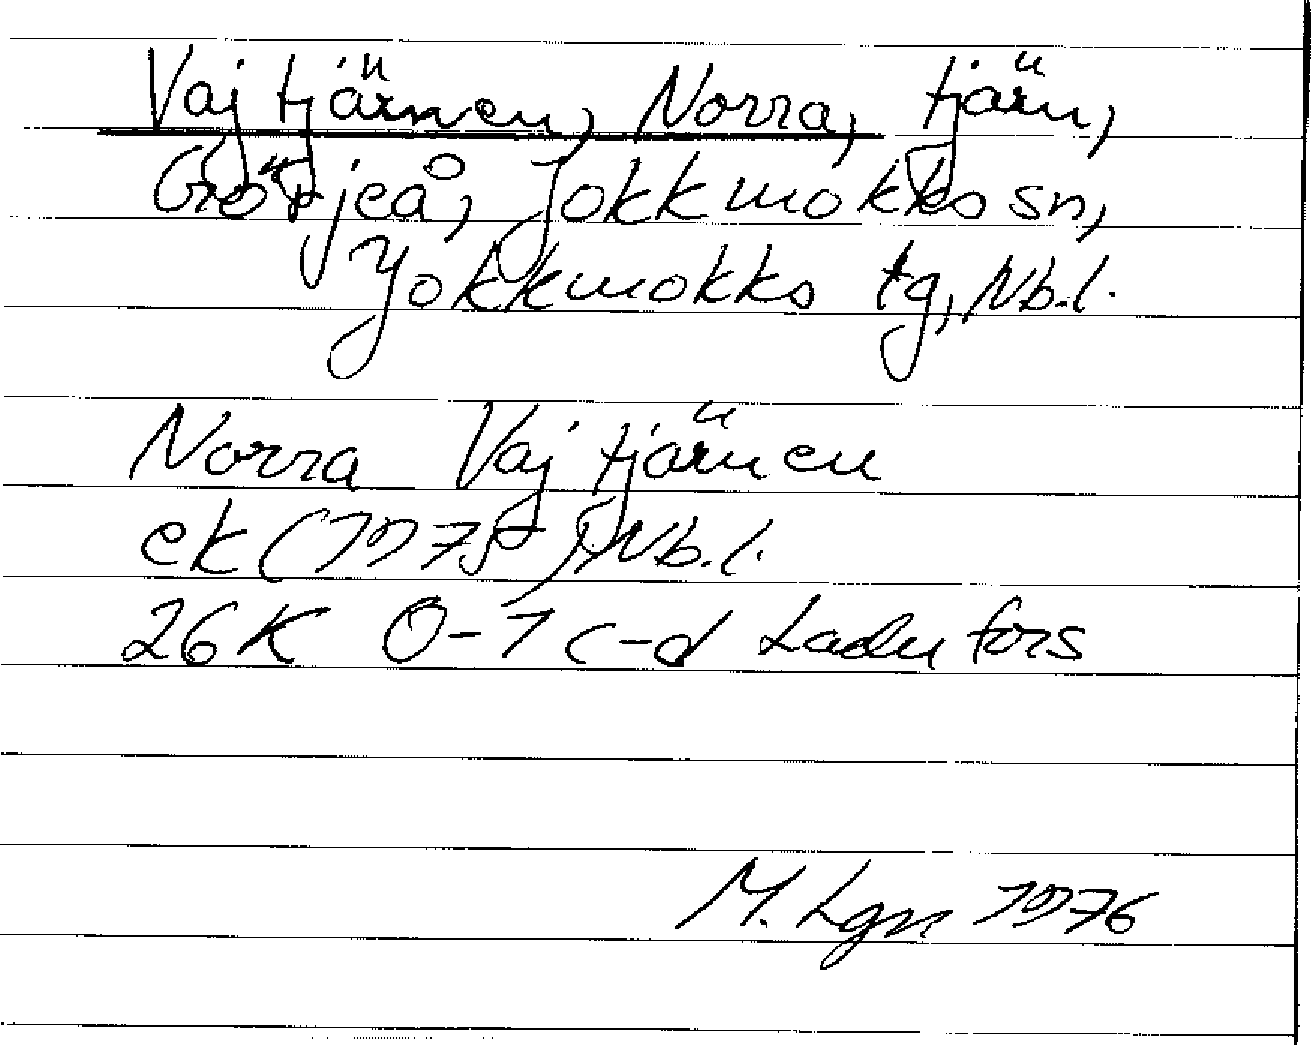 Vajtjärnen, Norra, tjärn,
Görjeå, Jokkmokks sn,
Jokkmokks tg, Nb.l.
Norra Vajtjärnen
ek (1975) Nb.l.
26K 0-1 c-d Ladufors
M. Lgn 1976